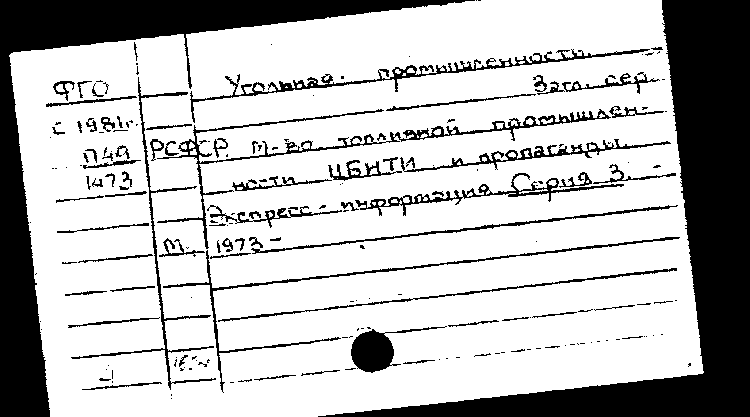 ФГО
Угольная промышленность.
Загл. сер.
с 1981г.
П49
1473
РСФСР. М-во топливной промышлен-
ности ЦБНТИ и пропаганды.
Экспресс-информация Серия 3. -
М., 1973 -